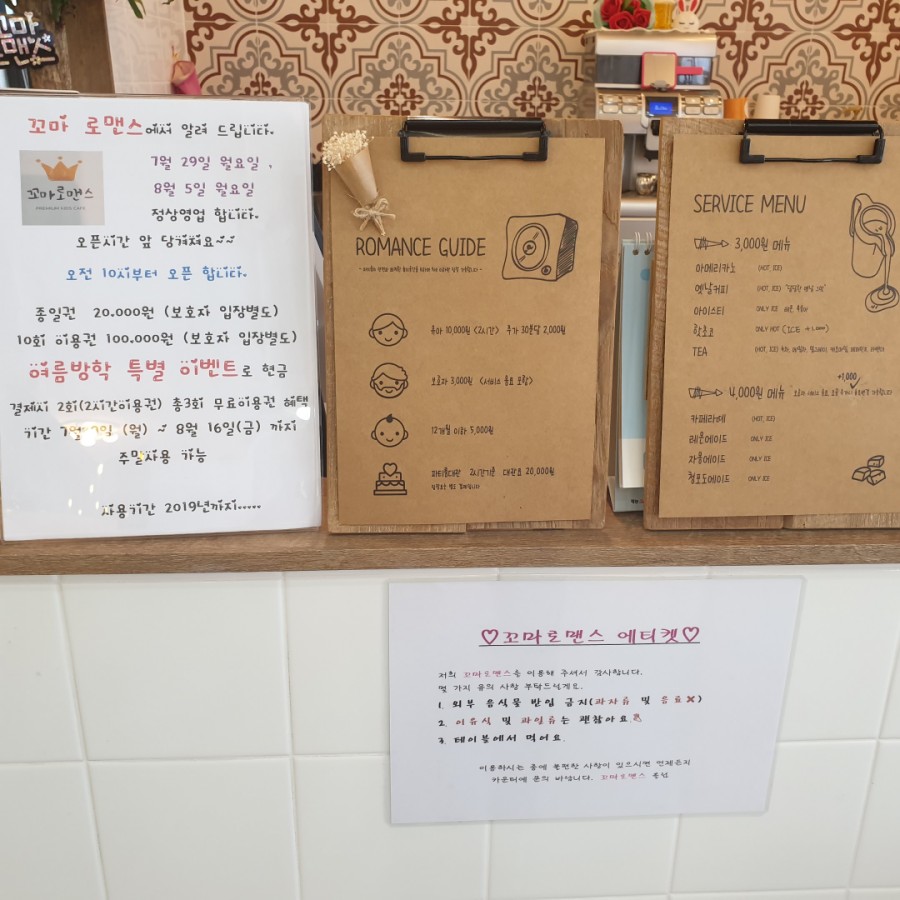 꼬마 로맨스에서 알려 드립니다.
7월 29일 월요일 ,
8월 5일 월요일
정상영업 합니다.
꼬마로맨스
PREMIUM KIDS CAFE
오픈시간 앞 당겨져요~~
오전 10시부터 오픈 합니다.
종일권 20.000원 (보호자 입장별도)
10회 이용권 100.000원 (보호자 입장별도)
여름방학 특별 이벤트로 현금
결제시 2회(2시간이용권) 총3회 무료이용권 혜택
기간 (월) ~ 8월 16일(금) 까지
주말사용 가능
사용기간 2019년까지.....
ROMANCE GUIDE
유아 10,000원 (2시간) 추가 30분당 2,000원
보호자 3,000원 <서비스 음료 포함>
12개월 이하 5,000원
파티룸대관 2시간기준 대관료 20,000원
입장료는 별도
SERVICE MENU
3,000원 메뉴
아메리카노 (HOT, ICE)
옛날커피 (HOT, ICE)
아이스티 ONLY ICE
핫초코 ONLY HOT (ICE +1,000)
TEA (HOT, ICE)
+1,000
4,000원 메뉴
카페라떼 (HOT, ICE)
레몬에이드 ONLY ICE
자몽에이드 ONLY ICE
청포도에이드 ONLY ICE
♡꼬마로맨스 에티켓♡
저희 꼬마로맨스를 이용해 주셔서 감사합니다.
몇 가지 유의 사항 부탁드릴게요.
1. 외부 음식물 반입 금지(과자류 및 음료✘)
2. 이유식 및 과일류는 괜찮아요.
3. 테이블에서 먹어요.
이용하시는 중에 불편한 사항이 있으시면 언제든지
카운터에 문의 바랍니다. 꼬마로맨스